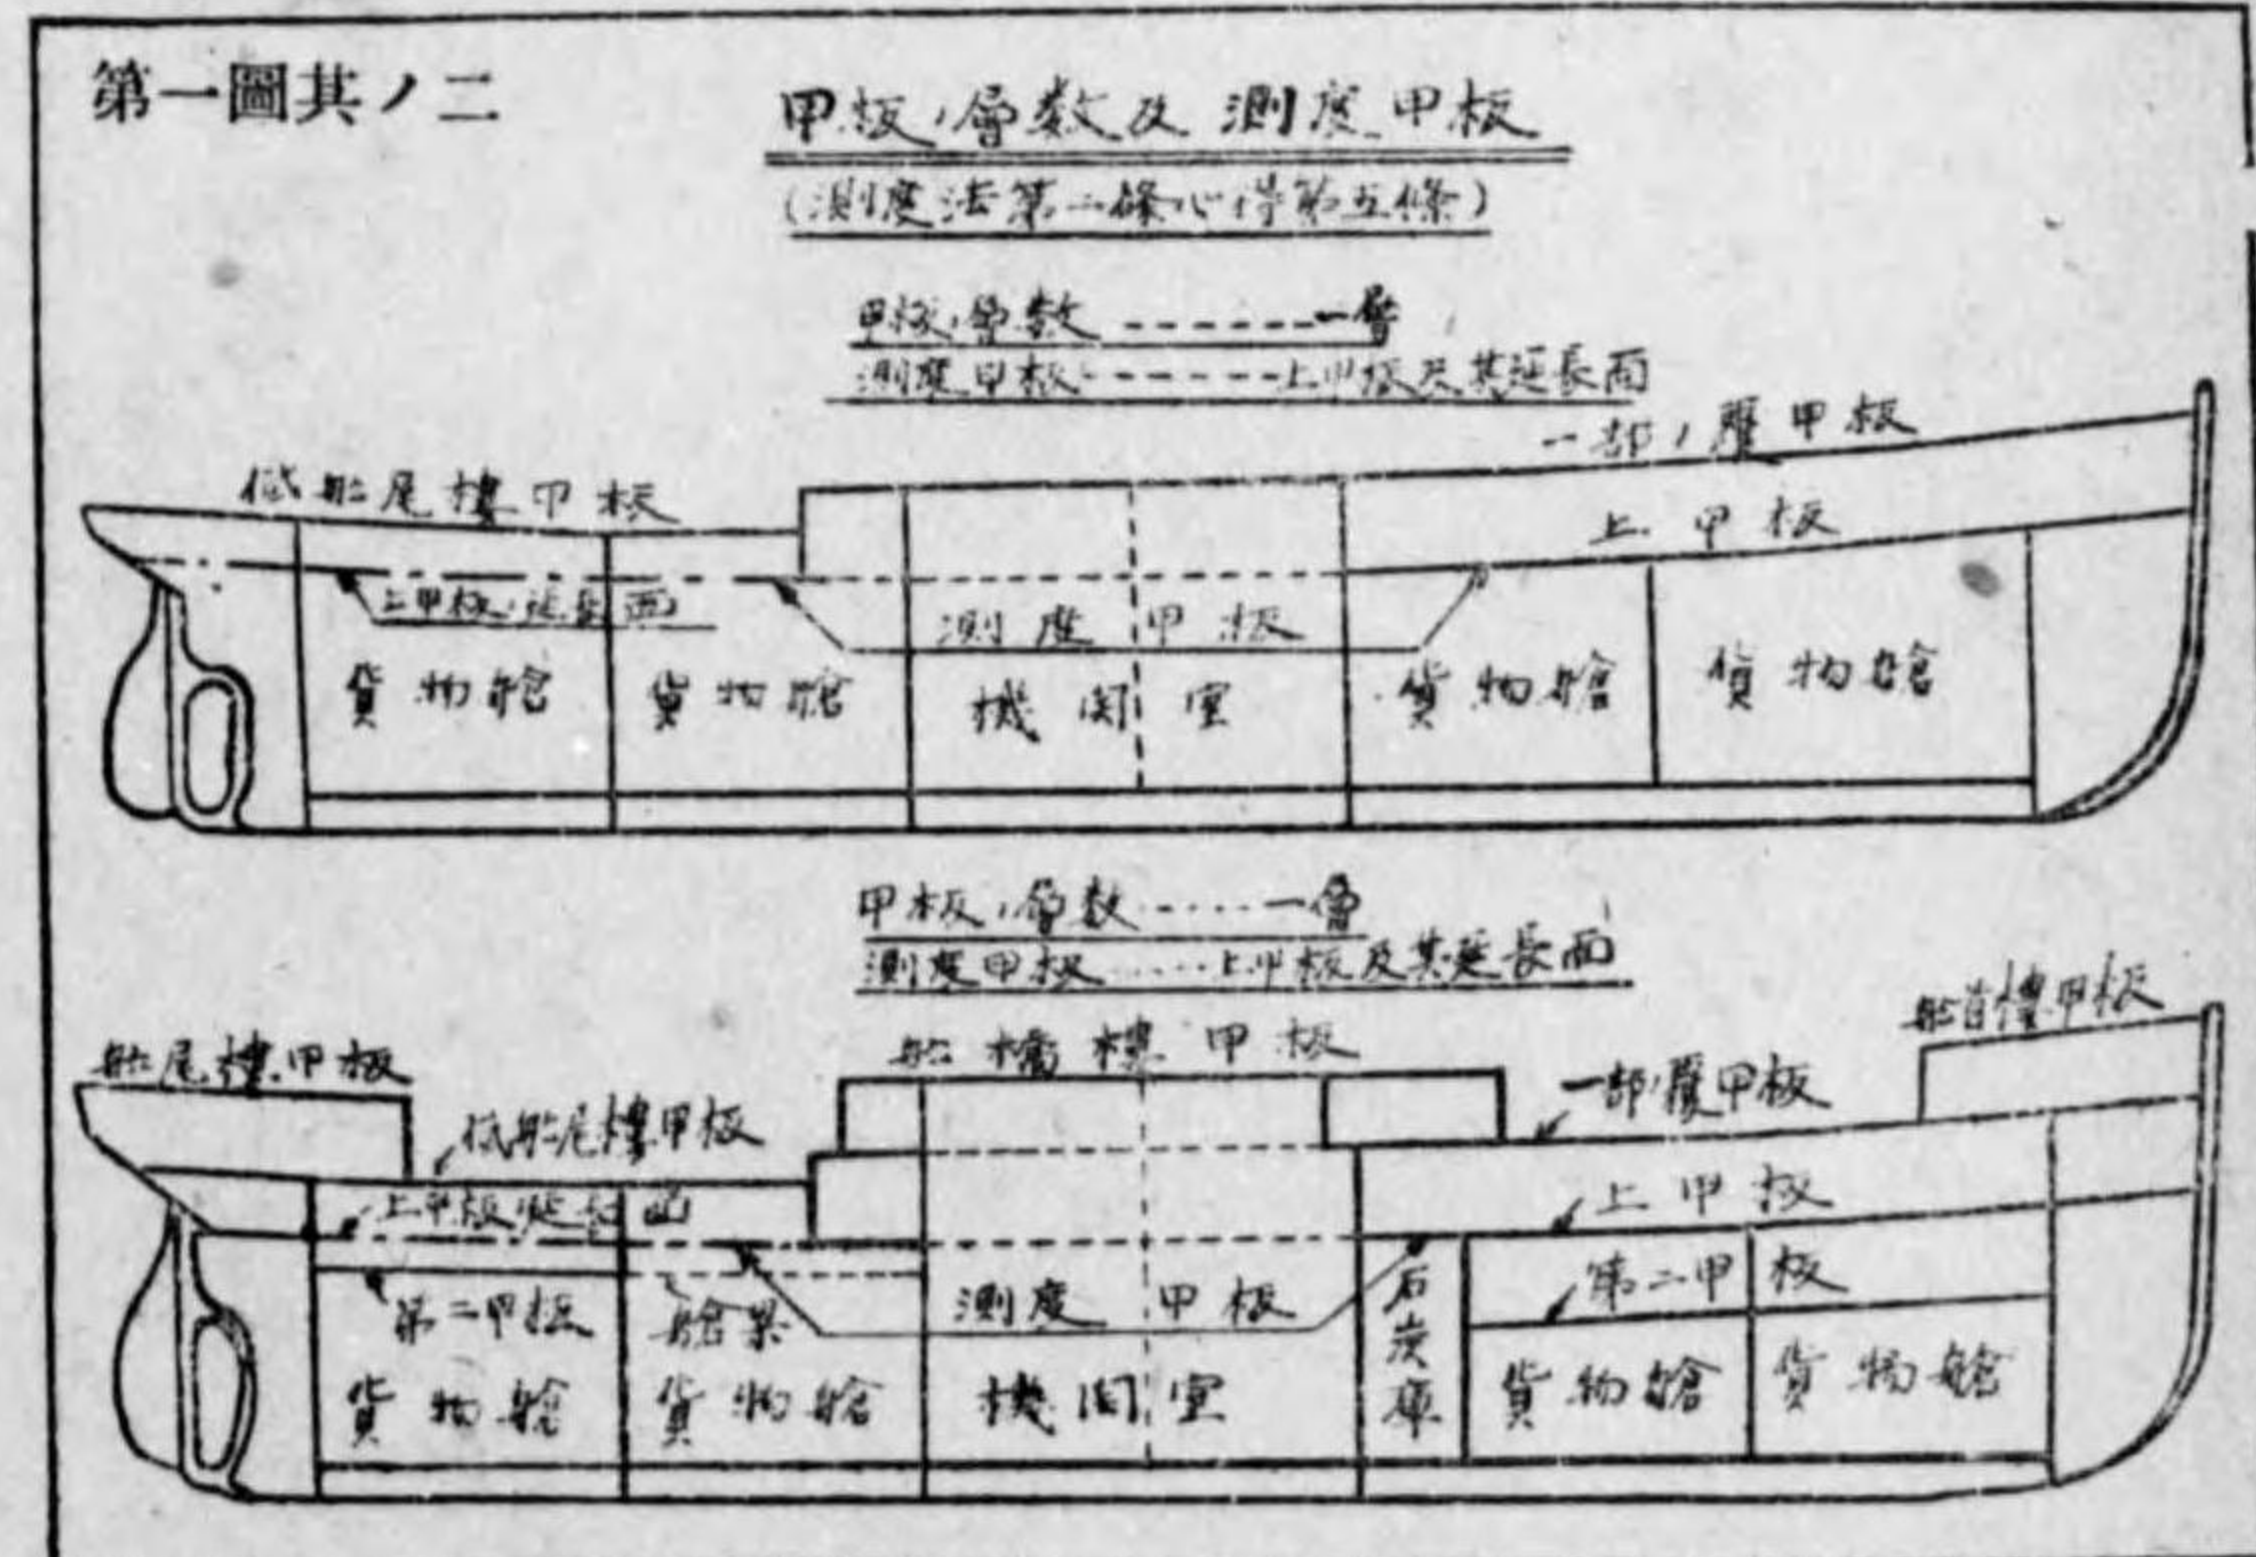 第一圖其ノ二
甲板ノ層数及測度甲板
(測度法第二條心得第五條)
甲板ノ層数------一層
測度甲板------上甲板及其延長面
一部ノ覆甲板
低船尾樓甲板
上甲板
上甲板ノ延長面
測度甲板
貨物艙
貨物艙
機関室
貨物艙
貨物艙
甲板ノ層数......一層
測度甲板......上甲板及其延長面
船首樓甲板
船橋樓甲板
船尾樓甲板
一部ノ覆甲板
低船尾樓甲板
上甲板
上甲板ノ延長面
第二甲板
測度甲板
第二甲板
艙梁
石炭庫
貨物艙
貨物艙
機関室
貨物艙
貨物艙